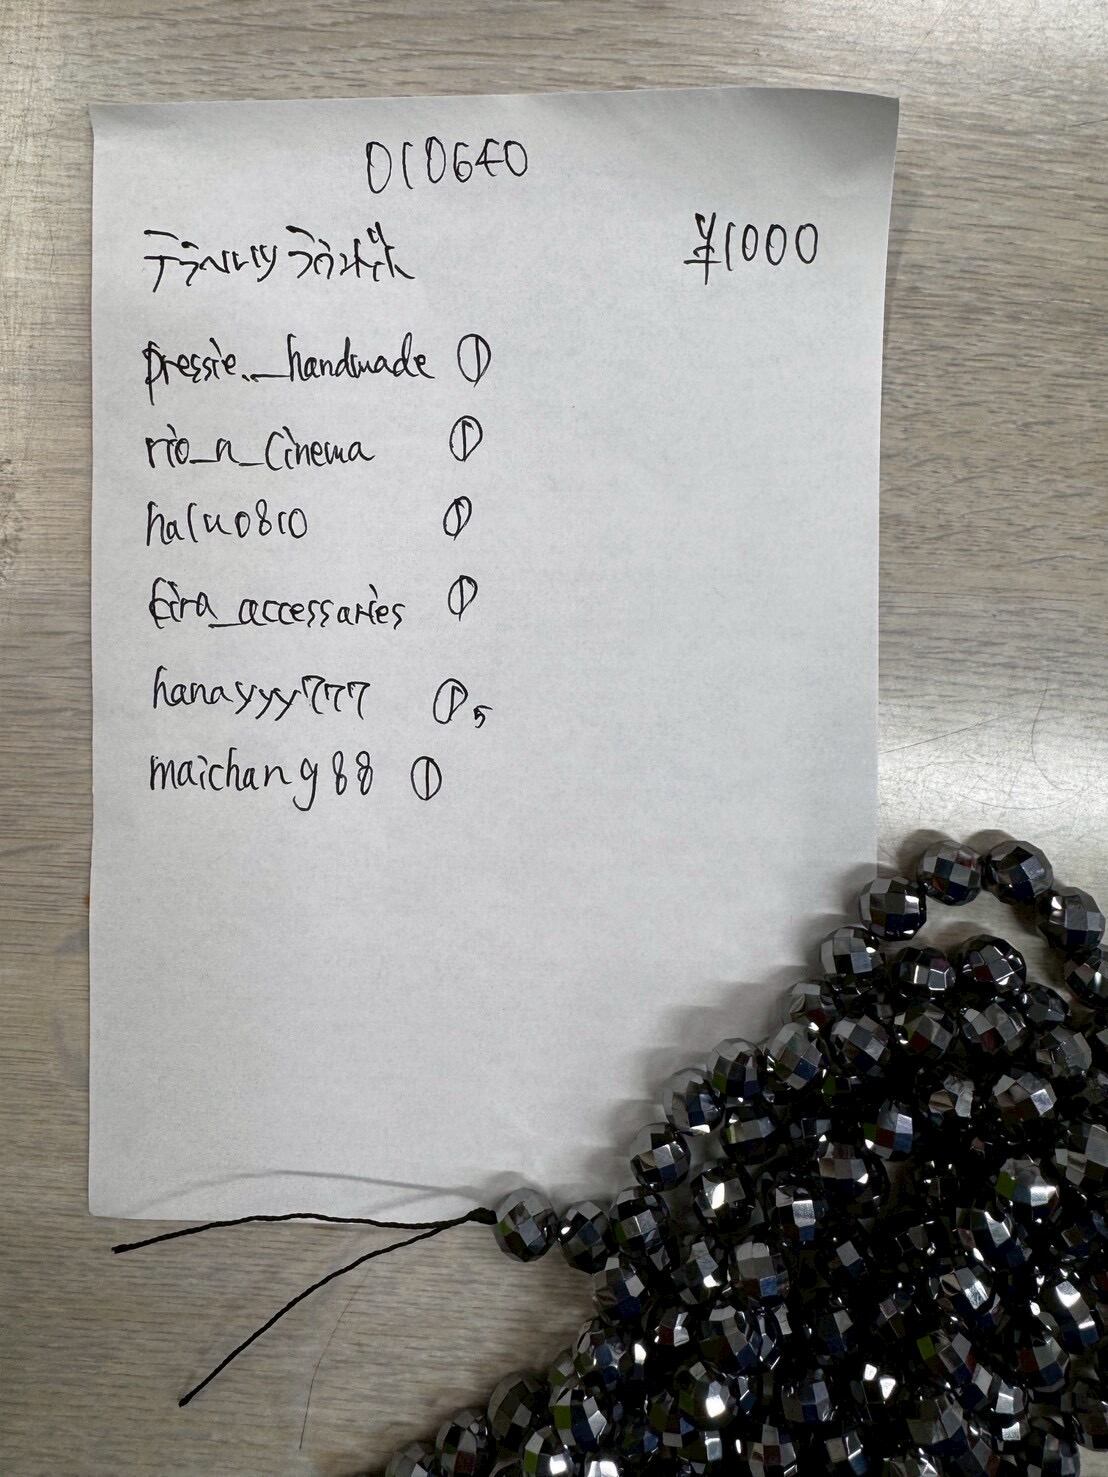 010640
テラヘルツ ラウンド ¥1000
pressie.__handmade ①
rio_n_cinema ①
halu0810 ①
eira_accessaries ①
hanayyy777 ① 5
maichang88 ①